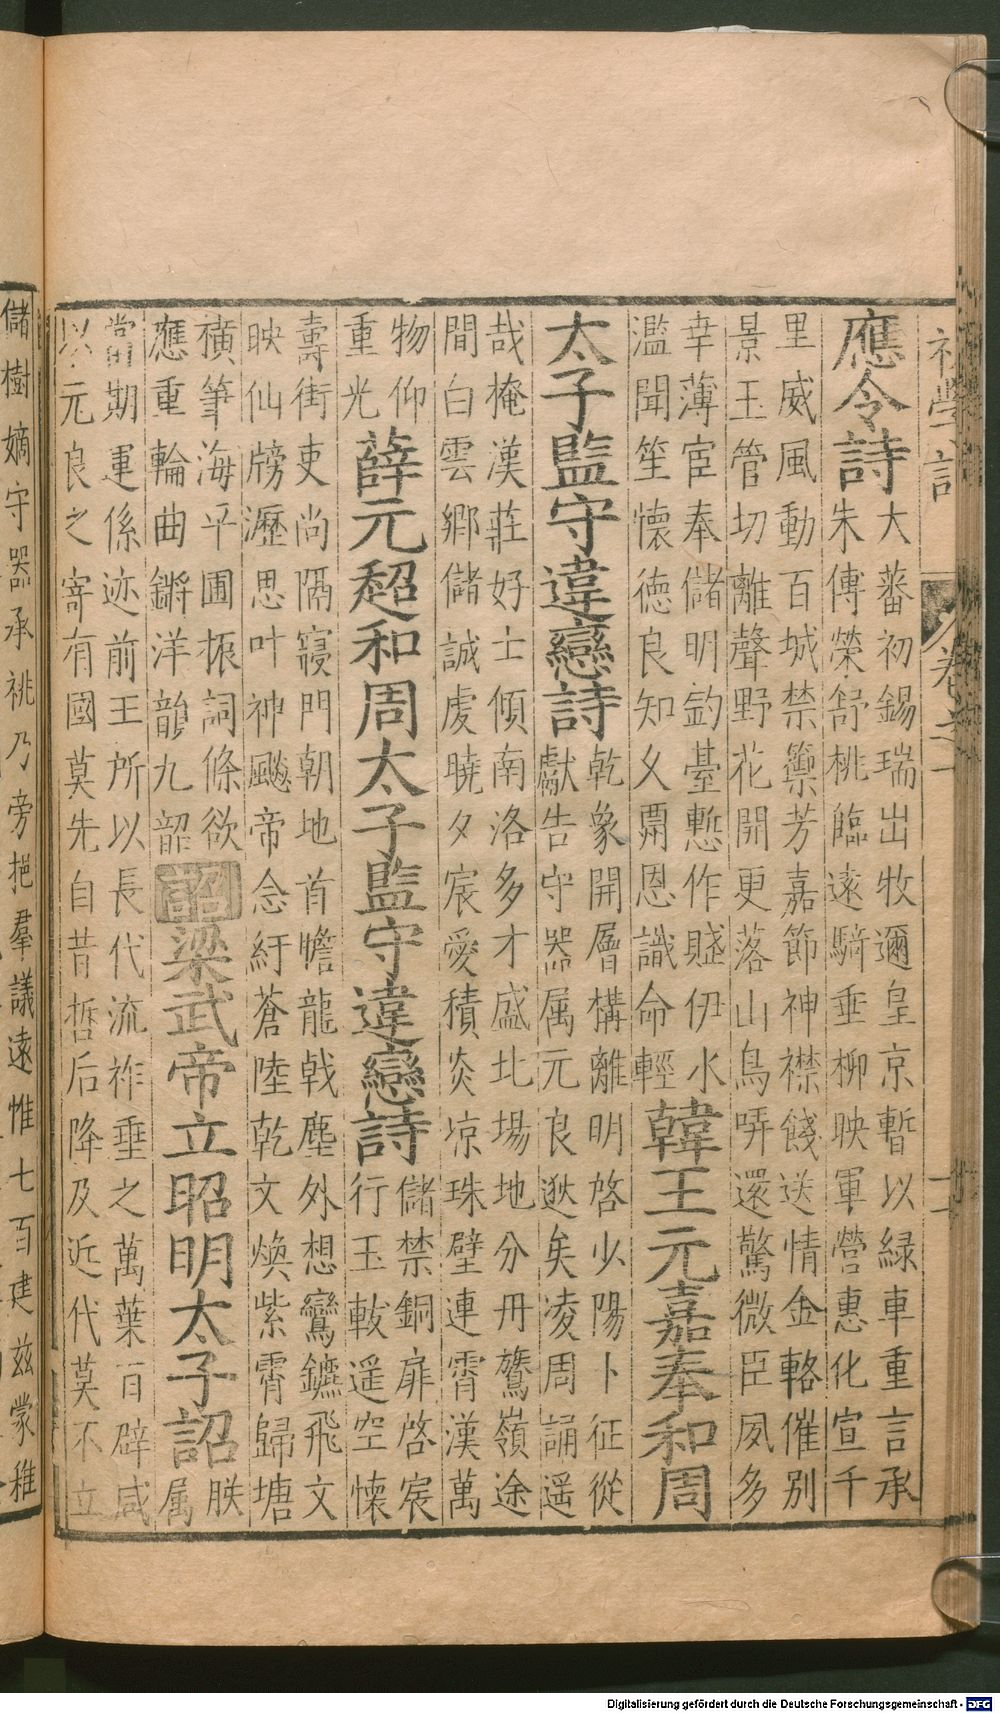 初學記
卷之十
應令詩
大蕃初錫瑞出牧邇皇京暫以緑車重言承
朱傳榮舒桃臨遠騎垂柳映軍營惠化宣千
里威風動百城禁籞芳嘉節神襟餞送情金輅催別
景玉管切離聲野花開更落山鳥哢還驚微臣夙多
幸薄宦奉儲明釣臺慙作賤伊水
濫聞笙懷德良知久冐恩識命輕
韓王元嘉奉和周
太子監守違戀詩
乾象開層構離明啓少陽卜征從
獻告守器属元良逖矣凌周誦遥
哉掩漢莊好士傾南洛多才盛北場地分丹鷟嶺途
間白雲鄉儲誠虔曉夕宸愛積炎凉珠璧連霄漢萬
物仰
重光
薛元超和周太子監守違戀詩
儲禁銅扉啓宸
行玉軷遥空懷
壽街吏尚隔寢門朝地首瞻龍戟塵外想鸞鑣飛文
映仙牓瀝思叶神飈帝念紆蒼陸乾文煥紫霄歸塘
橫筆海平圃振詞條欲
應重輪曲鏘洋韻九韶
詔
梁武帝立昭明太子詔
朕
属
當期運係迹前王所以長代流祚垂之萬葉百辟咸
以元良之寄有國莫先自昔哲后降及近代莫不立
儲樹嫡守器承祧乃旁挹羣議遠惟七百建兹蒙稚
Digitalisierung gefördert durch die Deutsche Forschungsgemeinschaft - DFG